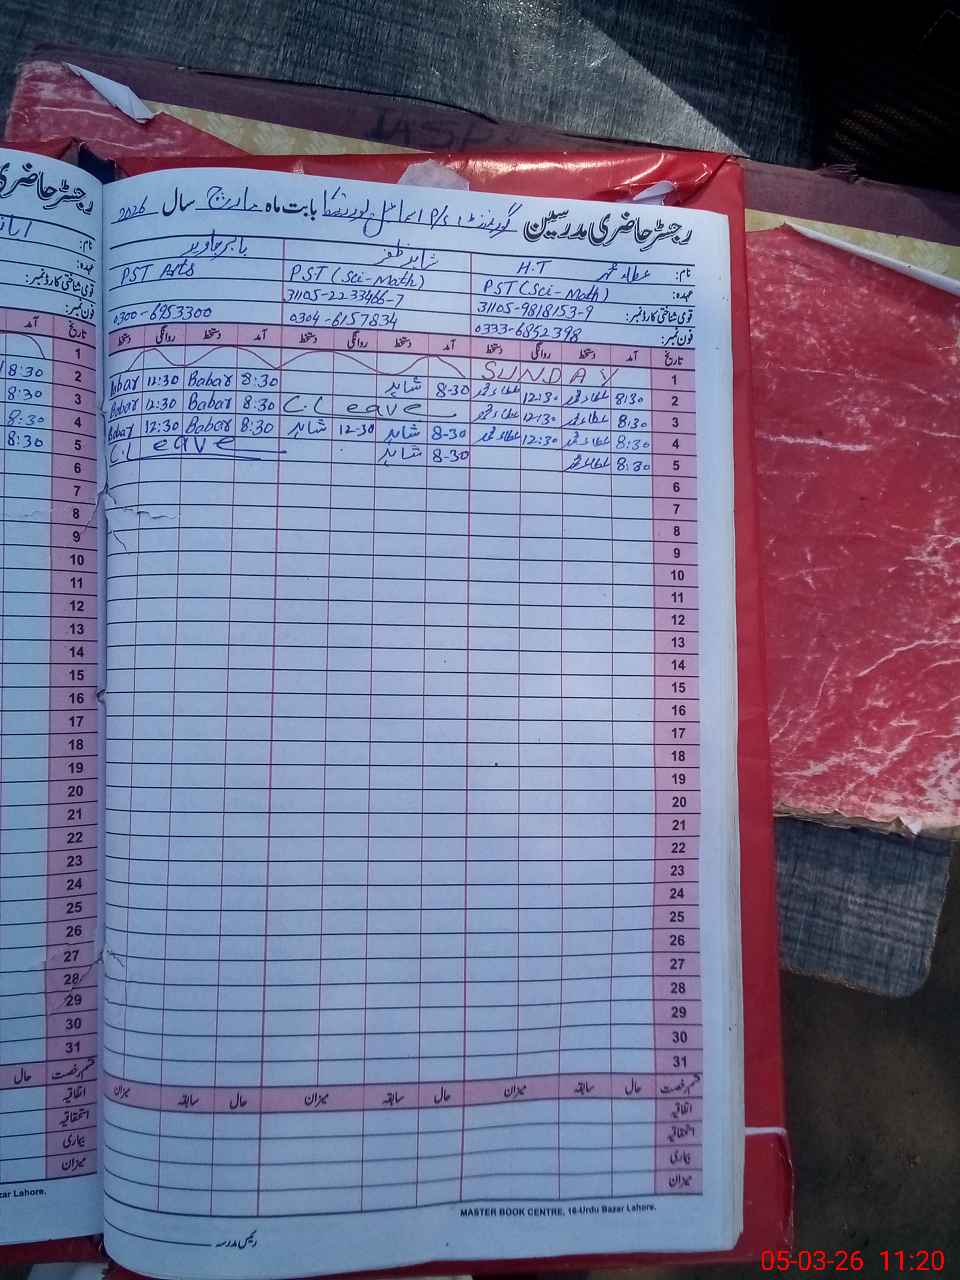 رجسٹر حاضری مدرسین گورنمنٹ P/S اسماعیل پور بابت ماہ مارچ سال 2026
نام: عطاء محمد H.T شاہد ظفر بابر جاوید
عہدہ: PST (Sci-Math) PST (Sci-Math) PST Arts
قومی شناختی کارڈ نمبر: 31105-9818153-9 31105-2233466-7
فون نمبر: 0333-6852398 0304-6157834 0300-6953300
تاریخ آمد دستخط روانگی دستخط آمد دستخط روانگی دستخط آمد دستخط روانگی دستخط
1 SUNDAY
2 8:30 عطاء محمد 12:30 عطاء محمد 8-30 شاہد 8:30 Babar 12:30 Babar
3 8:30 عطاء محمد 12:30 عطاء محمد C.Leave 8:30 Babar 12:30 Babar
4 8:30 عطاء محمد 12:30 عطاء محمد 8-30 شاہد 12-30 شاہد 8:30 Babar 12:30 Babar
5 8:30 عطاء محمد 8-30 شاہد C.Leave
6
7
8
9
10
11
12
13
14
15
16
17
18
19
20
21
22
23
24
25
26
27
28
29
30
31
قسم رخصت حال سابقہ میزان حال سابقہ میزان حال سابقہ میزان
اتفاقیہ
استحقاقیہ
بیماری
میزان
MASTER BOOK CENTRE, 16-Urdu Bazar Lahore.
رئیس مدرسہ
رجسٹر حاضری
نام:
عہدہ:
قومی شناختی کارڈ نمبر:
فون نمبر:
تاریخ آمد
1
2 8:30
3 8:30
4 8:30
5 8:30
6
7
8
9
10
11
12
13
14
15
16
17
18
19
20
21
22
23
24
25
26
27
28
29
30
31
قسم رخصت حال
اتفاقیہ
استحقاقیہ
بیماری
میزان
zar Lahore.
05-03-26 11:20